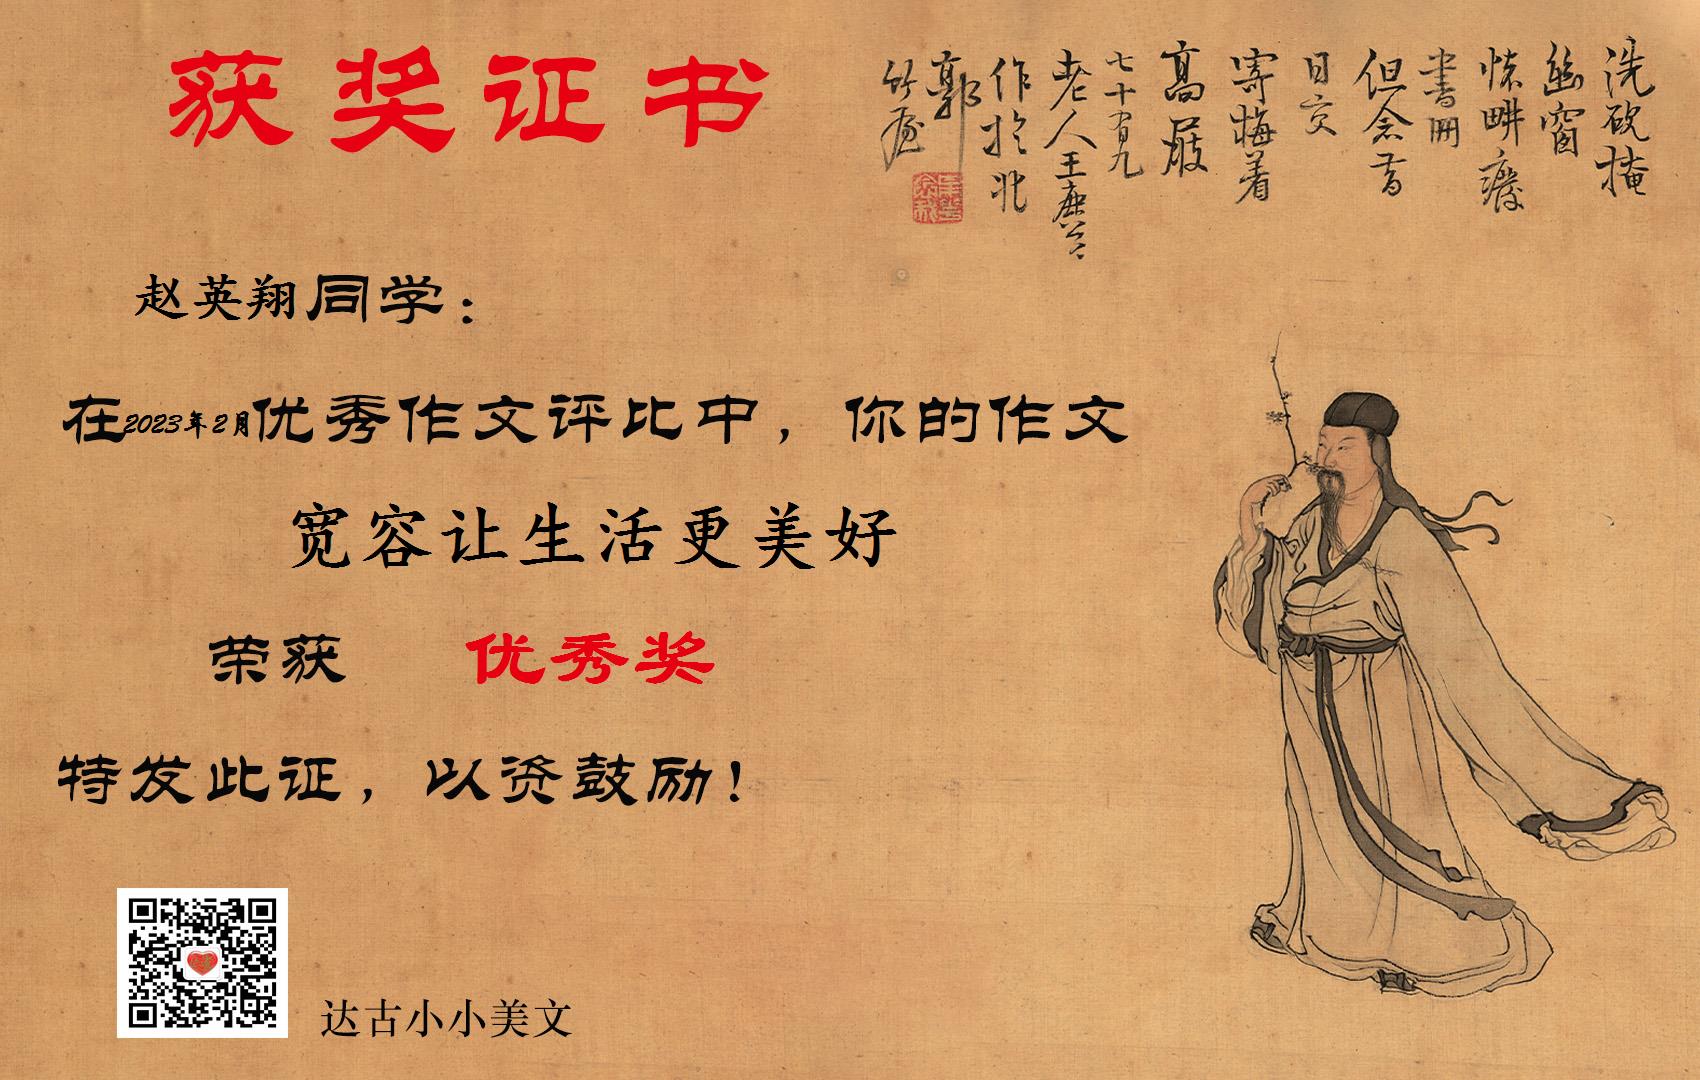 获奖证书
洗砚掩
幽窗
怀畊癈
書冊
但念昔
日交
寄梅着
髙屐
七十有九
老人王
作於北
郭
竹
赵英翔同学：
在2023年2月优秀作文评比中，你的作文
宽容让生活更美好
荣获 优秀奖
特发此证，以资鼓励！
达古小小美文